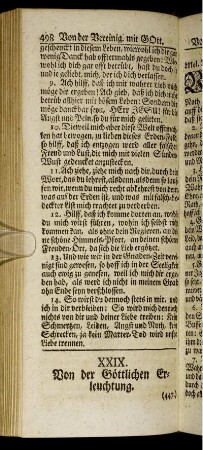 498 Von der Vereinig. mit GOtt.
geschenckt in diesem Leben, wiewohl ich dir gar
wenig Danck hab offtermahls gegeben: Wie-
wohl ich dich gar offt betrübt, hast du doch
je geliebt mich, der ich dich verlassen.
9. Ach hilff, daß ich mit wahrer Reu dich
möge der ergeben: Ach gieb, daß ich dich nicht
betrüb allhier mit bösem Leben: Sondern dir
möge danckbar seyn, HErr JESU! für die
Angst und Pein, so du für mich gelitten.
10. Dieweil mich aber diese Welt offtmah-
len hat bewogen, in Lüsten dieses
so hilff, daß ich entzogen werd aller falschen
Freud und Lust, die mich mit vielen Sünden
Wust gedenckt anzustecken.
11. Ach ziehe, ziehe mich nach dir, durch dein
Wort, das du lehrest, alsdann
wir, wenn du mich recht abkehrest von dem,
was auf der Erden ist, und was mit falsch-be-
deckter List mich trachtet zu verderben.
12. Hilff, daß ich komme dorten an, wohin
du mich wirst führen, wohin ich selbst nicht
kommen kan, als ohne dein Regieren, an dei-
ne schöne Himmels-Pfort, an deinen schönen
Freuden-Ort, da sich die Lieb ergötzet.
13. Und wie wir in der Gnaden-Zeit ver-
einigt sind gewesen, so hoff ich in der Seeligkeit
auch ewig zu genesen, weil ich mich dir erge-
ben hab, als werd ich nicht in meinem Grab
ohn Ende seyn verschlossen.
14. So wirst du dennoch stets in mir, und
ich in dir verbleiben: So wird mich dennoch
nichts von dir und deiner Liebe treiben: Kein
Schmertzen, Leiden, Angst und Noth, kein
Schrecken, ja kein Marter-Tod wird unsre
Liebe trennen.
XXIX.
Von der Göttlichen Er-
leuchtung.
(447.)